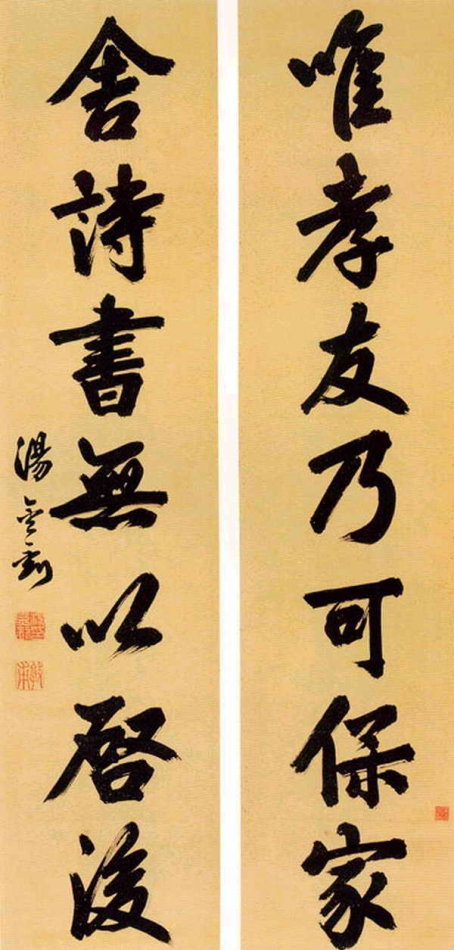 唯孝友乃可保家
舍詩書無以啓後
湯金釗